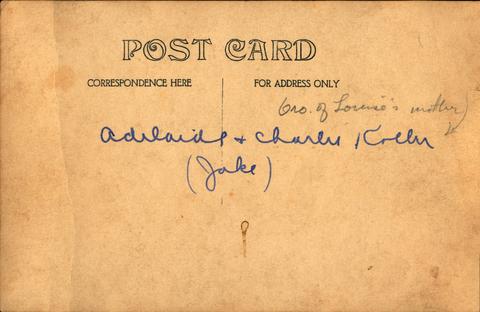 POST CARD
CORRESPONDENCE HERE
FOR ADDRESS ONLY
bro. of Louise's mother)
Adelaide + Charles Koller
(Jake)